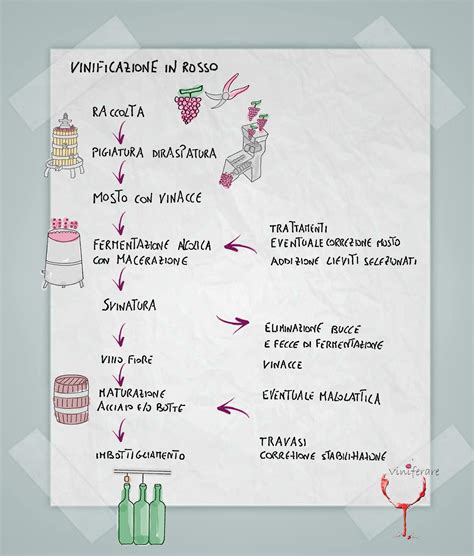 VINIFICAZIONE IN ROSSO
RACCOLTA
PIGIATURA DIRASPATURA
MOSTO CON VINACCE
FERMENTAZIONE ALCOLICA
CON MACERAZIONE
TRATTAMENTI
EVENTUALE CORREZIONE MOSTO
ADDIZIONE LIEVITI SELEZIONATI
SVINATURA
ELIMINAZIONE BUCCE
E FECCE DI FERMENTAZIONE
VINO FIORE
VINACCE
MATURAZIONE
ACCIAIO E/O BOTTE
EVENTUALE MALOLATTICA
IMBOTTIGLIAMENTO
TRAVASI
CORREZIONE STABILIZZAZIONE
Viniferare